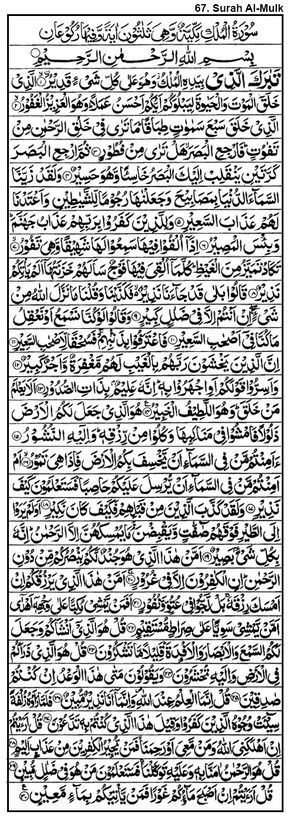 67. Surah Al-Mulk
سُوْرَةُ الْمُلْكِ مَكِّيَّةٌ وَّهِيَ ثَلٰثُوْنَ اٰيَةً وَّفِيْهَا رُكُوْعَانِ
بِسْمِ اللّٰهِ الرَّحْمٰنِ الرَّحِيْمِ
تَبٰرَكَ الَّذِيْ بِيَدِهِ الْمُلْكُ وَهُوَ عَلٰى كُلِّ شَيْءٍ قَدِيْرُ ۙ﴿۱﴾ الَّذِيْ
خَلَقَ الْمَوْتَ وَالْحَيٰوةَ لِيَبْلُوَكُمْ اَيُّكُمْ اَحْسَنُ عَمَلًا وَهُوَ الْعَزِيْزُ الْغَفُوْرُ ﴿۲﴾
الَّذِيْ خَلَقَ سَبْعَ سَمٰوٰتٍ طِبَاقًا مَا تَرٰى فِيْ خَلْقِ الرَّحْمٰنِ مِنْ
تَفٰوُتٍ فَارْجِعِ الْبَصَرَ هَلْ تَرٰى مِنْ فُطُوْرٍ ﴿۳﴾ ثُمَّ ارْجِعِ الْبَصَرَ
كَرَّتَيْنِ يَنْقَلِبْ اِلَيْكَ الْبَصَرُ خَاسِئًا وَّهُوَ حَسِيْرٌ ﴿۴﴾ وَلَقَدْ زَيَّنَّا
السَّمَآءَ الدُّنْيَا بِمَصَابِيْحَ وَجَعَلْنٰهَا رُجُوْمًا لِّلشَّيٰطِيْنِ وَاَعْتَدْنَا
لَهُمْ عَذَابَ السَّعِيْرِ ﴿۵﴾ وَلِلَّذِيْنَ كَفَرُوْا بِرَبِّهِمْ عَذَابُ جَهَنَّمَ
وَبِئْسَ الْمَصِيْرُ ﴿۶﴾ اِذَآ اُلْقُوْا فِيْهَا سَمِعُوْا لَهَا شَهِيْقًا وَّهِيَ تَفُوْرُ ﴿۷﴾
تَكَادُ تَمَيَّزُ مِنَ الْغَيْظِ كُلَّمَآ اُلْقِيَ فِيْهَا فَوْجٌ سَاَلَهُمْ خَزَنَتُهَآ اَلَمْ يَاْتِكُمْ
نَذِيْرٌ ﴿۸﴾ قَالُوْا بَلٰى قَدْ جَآءَنَا نَذِيْرٌ فَكَذَّبْنَا وَقُلْنَا مَا نَزَّلَ اللّٰهُ مِنْ
شَيْءٍ اِنْ اَنْتُمْ اِلَّا فِيْ ضَلٰلٍ كَبِيْرٍ ﴿۹﴾ وَقَالُوْا لَوْ كُنَّا نَسْمَعُ اَوْ نَعْقِلُ
مَا كُنَّا فِيْٓ اَصْحٰبِ السَّعِيْرِ ﴿۱۰﴾ فَاعْتَرَفُوْا بِذَنْۢبِهِمْ فَسُحْقًا لِّاَصْحٰبِ السَّعِيْرِ ﴿۱۱﴾
اِنَّ الَّذِيْنَ يَخْشَوْنَ رَبَّهُمْ بِالْغَيْبِ لَهُمْ مَّغْفِرَةٌ وَّاَجْرٌ كَبِيْرٌ ﴿۱۲﴾
وَاَسِرُّوْا قَوْلَكُمْ اَوِ اجْهَرُوْا بِهٖ اِنَّهٗ عَلِيْمٌۢ بِذَاتِ الصُّدُوْرِ ﴿۱۳﴾ اَلَا يَعْلَمُ
مَنْ خَلَقَ وَهُوَ اللَّطِيْفُ الْخَبِيْرُ ﴿۱۴﴾ هُوَ الَّذِيْ جَعَلَ لَكُمُ الْاَرْضَ
ذَلُوْلًا فَامْشُوْا فِيْ مَنَاكِبِهَا وَكُلُوْا مِنْ رِّزْقِهٖ وَاِلَيْهِ النُّشُوْرُ ﴿۱۵﴾
ءَاَمِنْتُمْ مَّنْ فِي السَّمَآءِ اَنْ يَّخْسِفَ بِكُمُ الْاَرْضَ فَاِذَا هِيَ تَمُوْرُ ﴿۱۶﴾ اَمْ
اَمِنْتُمْ مَّنْ فِي السَّمَآءِ اَنْ يُّرْسِلَ عَلَيْكُمْ حَاصِبًا فَسَتَعْلَمُوْنَ كَيْفَ
نَذِيْرِ ﴿۱۷﴾ وَلَقَدْ كَذَّبَ الَّذِيْنَ مِنْ قَبْلِهِمْ فَكَيْفَ كَانَ نَكِيْرِ ﴿۱۸﴾ اَوَلَمْ يَرَوْا
اِلَى الطَّيْرِ فَوْقَهُمْ صٰٓفّٰتٍ وَّيَقْبِضْنَ مَا يُمْسِكُهُنَّ اِلَّا الرَّحْمٰنُ اِنَّهٗ
بِكُلِّ شَيْءٍۢ بَصِيْرٌ ﴿۱۹﴾ اَمَّنْ هٰذَا الَّذِيْ هُوَ جُنْدٌ لَّكُمْ يَنْصُرُكُمْ مِّنْ دُوْنِ
الرَّحْمٰنِ اِنِ الْكٰفِرُوْنَ اِلَّا فِيْ غُرُوْرٍ ﴿۲۰﴾ اَمَّنْ هٰذَا الَّذِيْ يَرْزُقُكُمْ اِنْ
اَمْسَكَ رِزْقَهٗ بَلْ لَّجُّوْا فِيْ عُتُوٍّ وَّنُفُوْرٍ ﴿۲۱﴾ اَفَمَنْ يَّمْشِيْ مُكِبًّا عَلٰى وَجْهِهٖٓ اَهْدٰٓى
اَمَّنْ يَّمْشِيْ سَوِيًّا عَلٰى صِرَاطٍ مُّسْتَقِيْمٍ ﴿۲۲﴾ قُلْ هُوَ الَّذِيْٓ اَنْشَاَكُمْ وَجَعَلَ
لَكُمُ السَّمْعَ وَالْاَبْصَارَ وَالْاَفْـِٕدَةَ قَلِيْلًا مَّا تَشْكُرُوْنَ ﴿۲۳﴾ قُلْ هُوَ الَّذِيْ ذَرَاَكُمْ
فِي الْاَرْضِ وَاِلَيْهِ تُحْشَرُوْنَ ﴿۲۴﴾ وَيَقُوْلُوْنَ مَتٰى هٰذَا الْوَعْدُ اِنْ كُنْتُمْ
صٰدِقِيْنَ ﴿۲۵﴾ قُلْ اِنَّمَا الْعِلْمُ عِنْدَ اللّٰهِ وَاِنَّمَآ اَنَا نَذِيْرٌ مُّبِيْنٌ ﴿۲۶﴾ فَلَمَّا رَاَوْهُ زُلْفَةً
سِيْٓـَٔتْ وُجُوْهُ الَّذِيْنَ كَفَرُوْا وَقِيْلَ هٰذَا الَّذِيْ كُنْتُمْ بِهٖ تَدَّعُوْنَ ﴿۲۷﴾ قُلْ اَرَءَيْتُمْ
اِنْ اَهْلَكَنِيَ اللّٰهُ وَمَنْ مَّعِيَ اَوْ رَحِمَنَا فَمَنْ يُّجِيْرُ الْكٰفِرِيْنَ مِنْ عَذَابٍ اَلِيْمٍ ﴿۲۸﴾
قُلْ هُوَ الرَّحْمٰنُ اٰمَنَّا بِهٖ وَعَلَيْهِ تَوَكَّلْنَا فَسَتَعْلَمُوْنَ مَنْ هُوَ فِيْ ضَلٰلٍ مُّبِيْنٍ ﴿۲۹﴾
قُلْ اَرَءَيْتُمْ اِنْ اَصْبَحَ مَآؤُكُمْ غَوْرًا فَمَنْ يَّاْتِيْكُمْ بِمَآءٍ مَّعِيْنٍ ﴿۳۰﴾